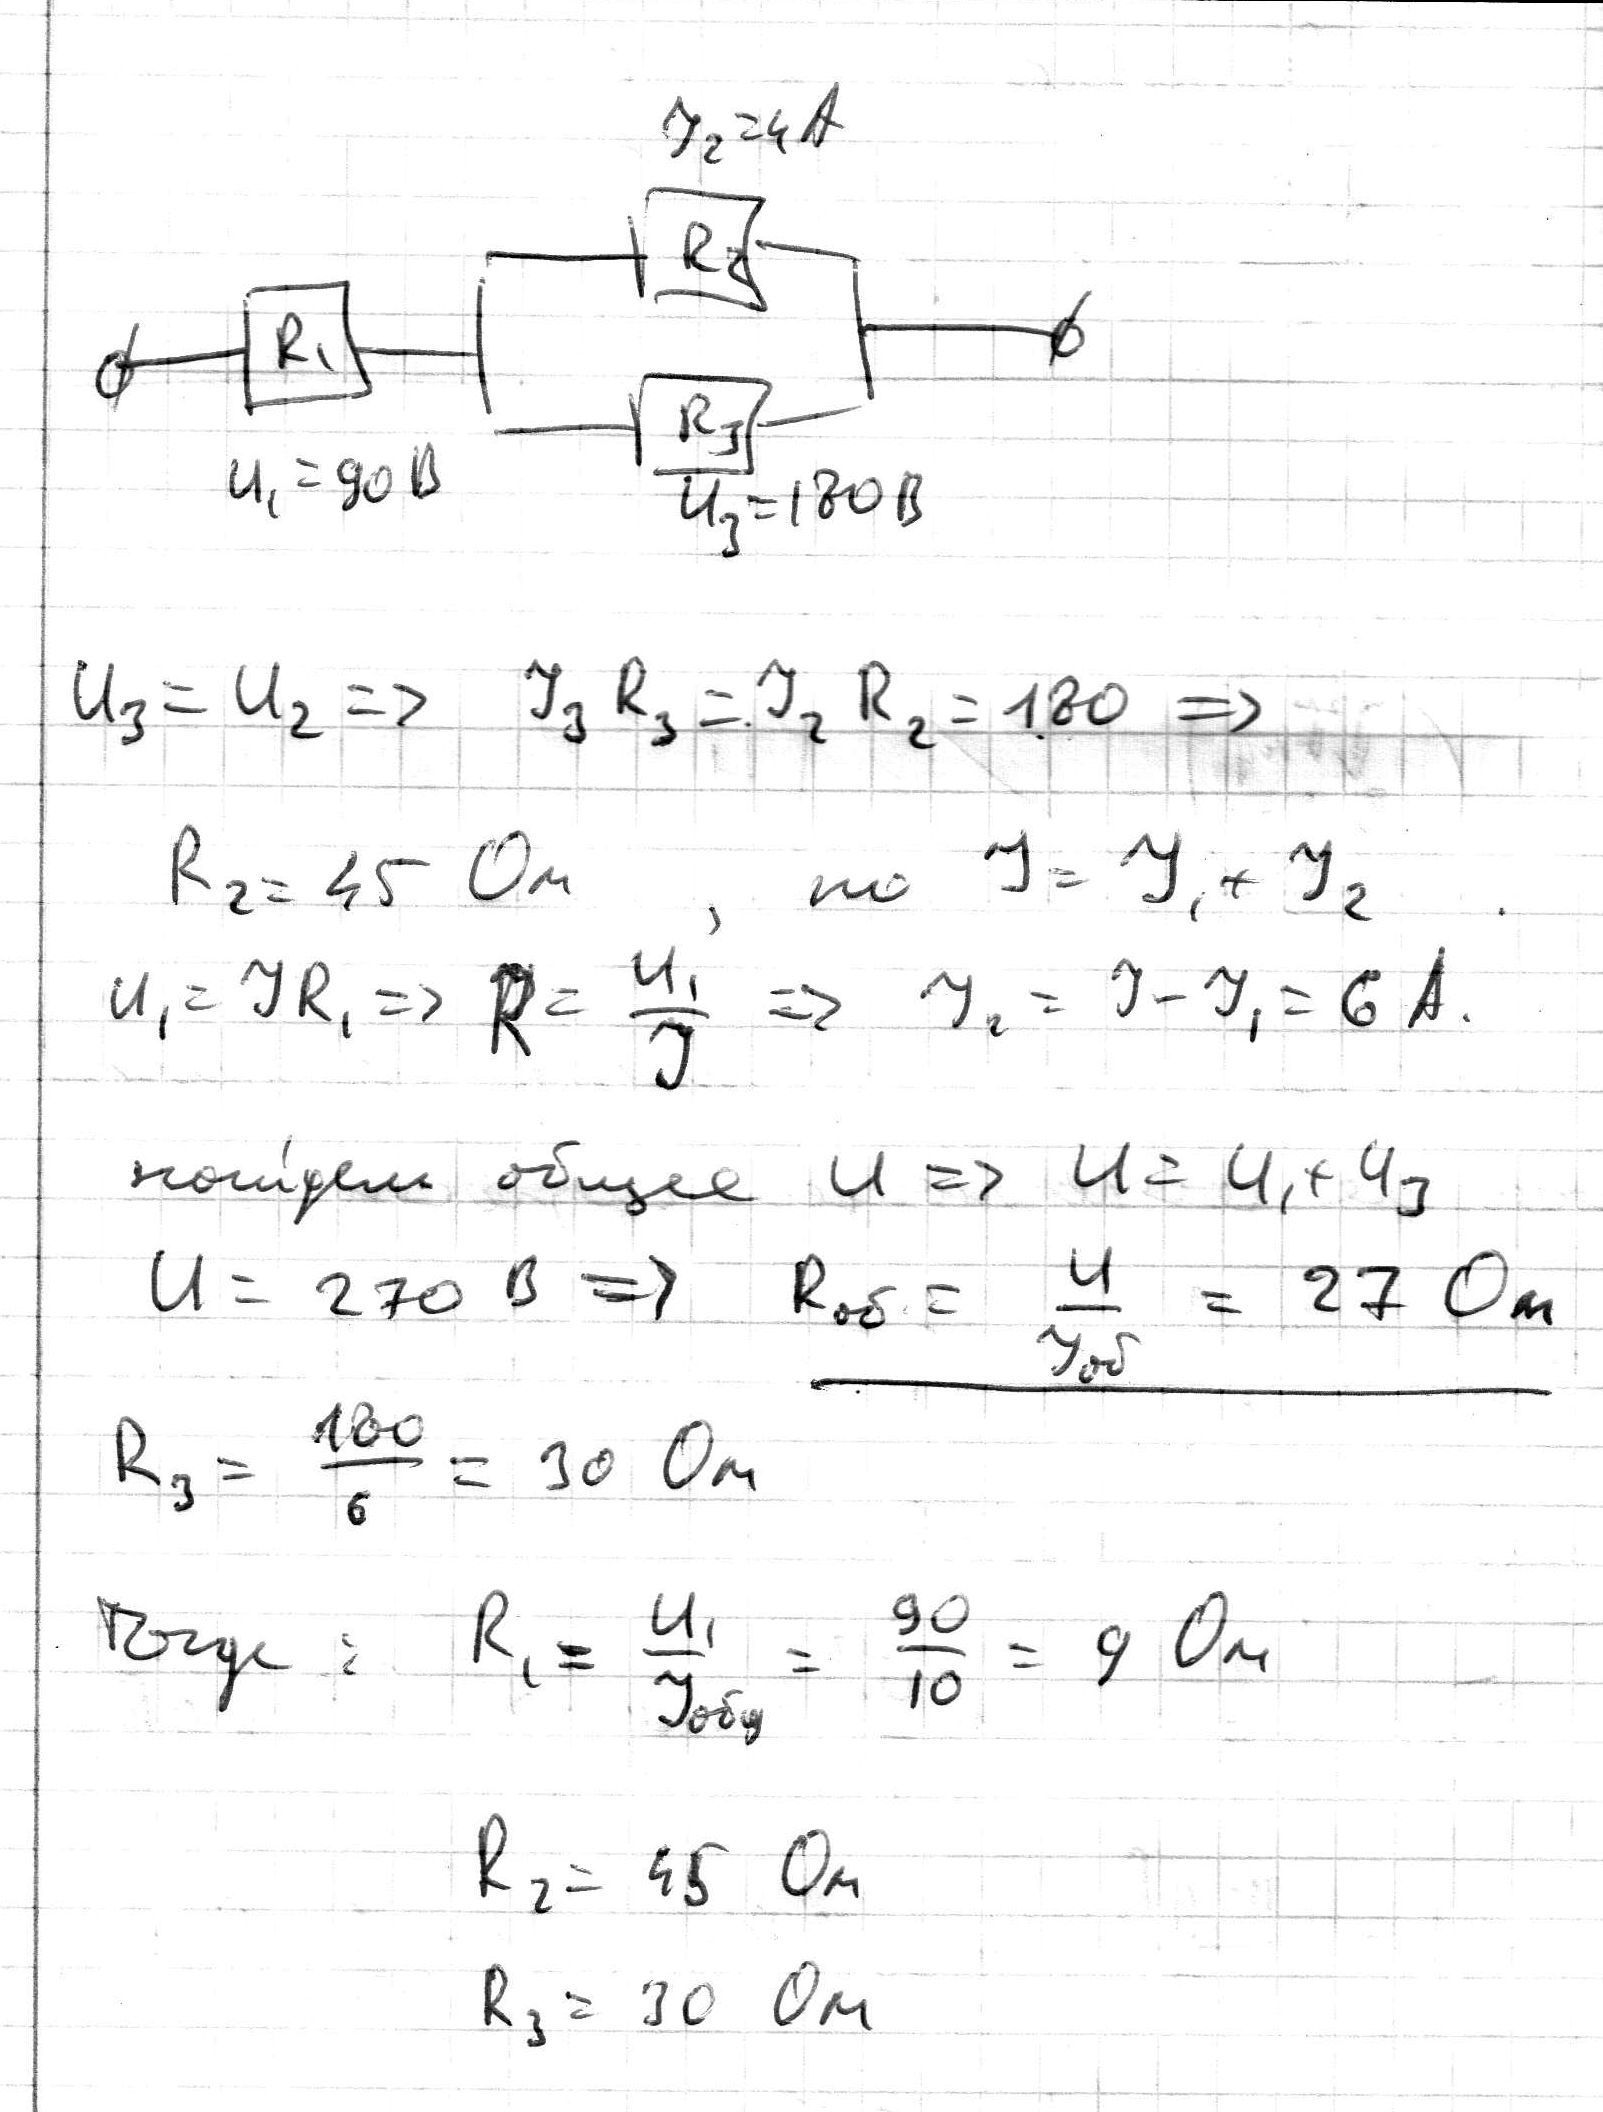 I₂=4A
R₂
R₁
R₃
U₁=90В
U₃=180В
U₃=U₂ => I₃R₃=I₂R₂=180 =>
R₂=45 Ом, но I=I₁+I₂.
U₁=IR₁ => R=U₁/I => I₂=I-I₁=6 A.
найдем общее U => U=U₁+U₃
U=270 В => Rоб.=U/Iоб=27 Ом
R₃=180/6=30 Ом
Тогда: R₁=U₁/Iобщ=90/10=9 Ом
R₂=45 Ом
R₃=30 Ом